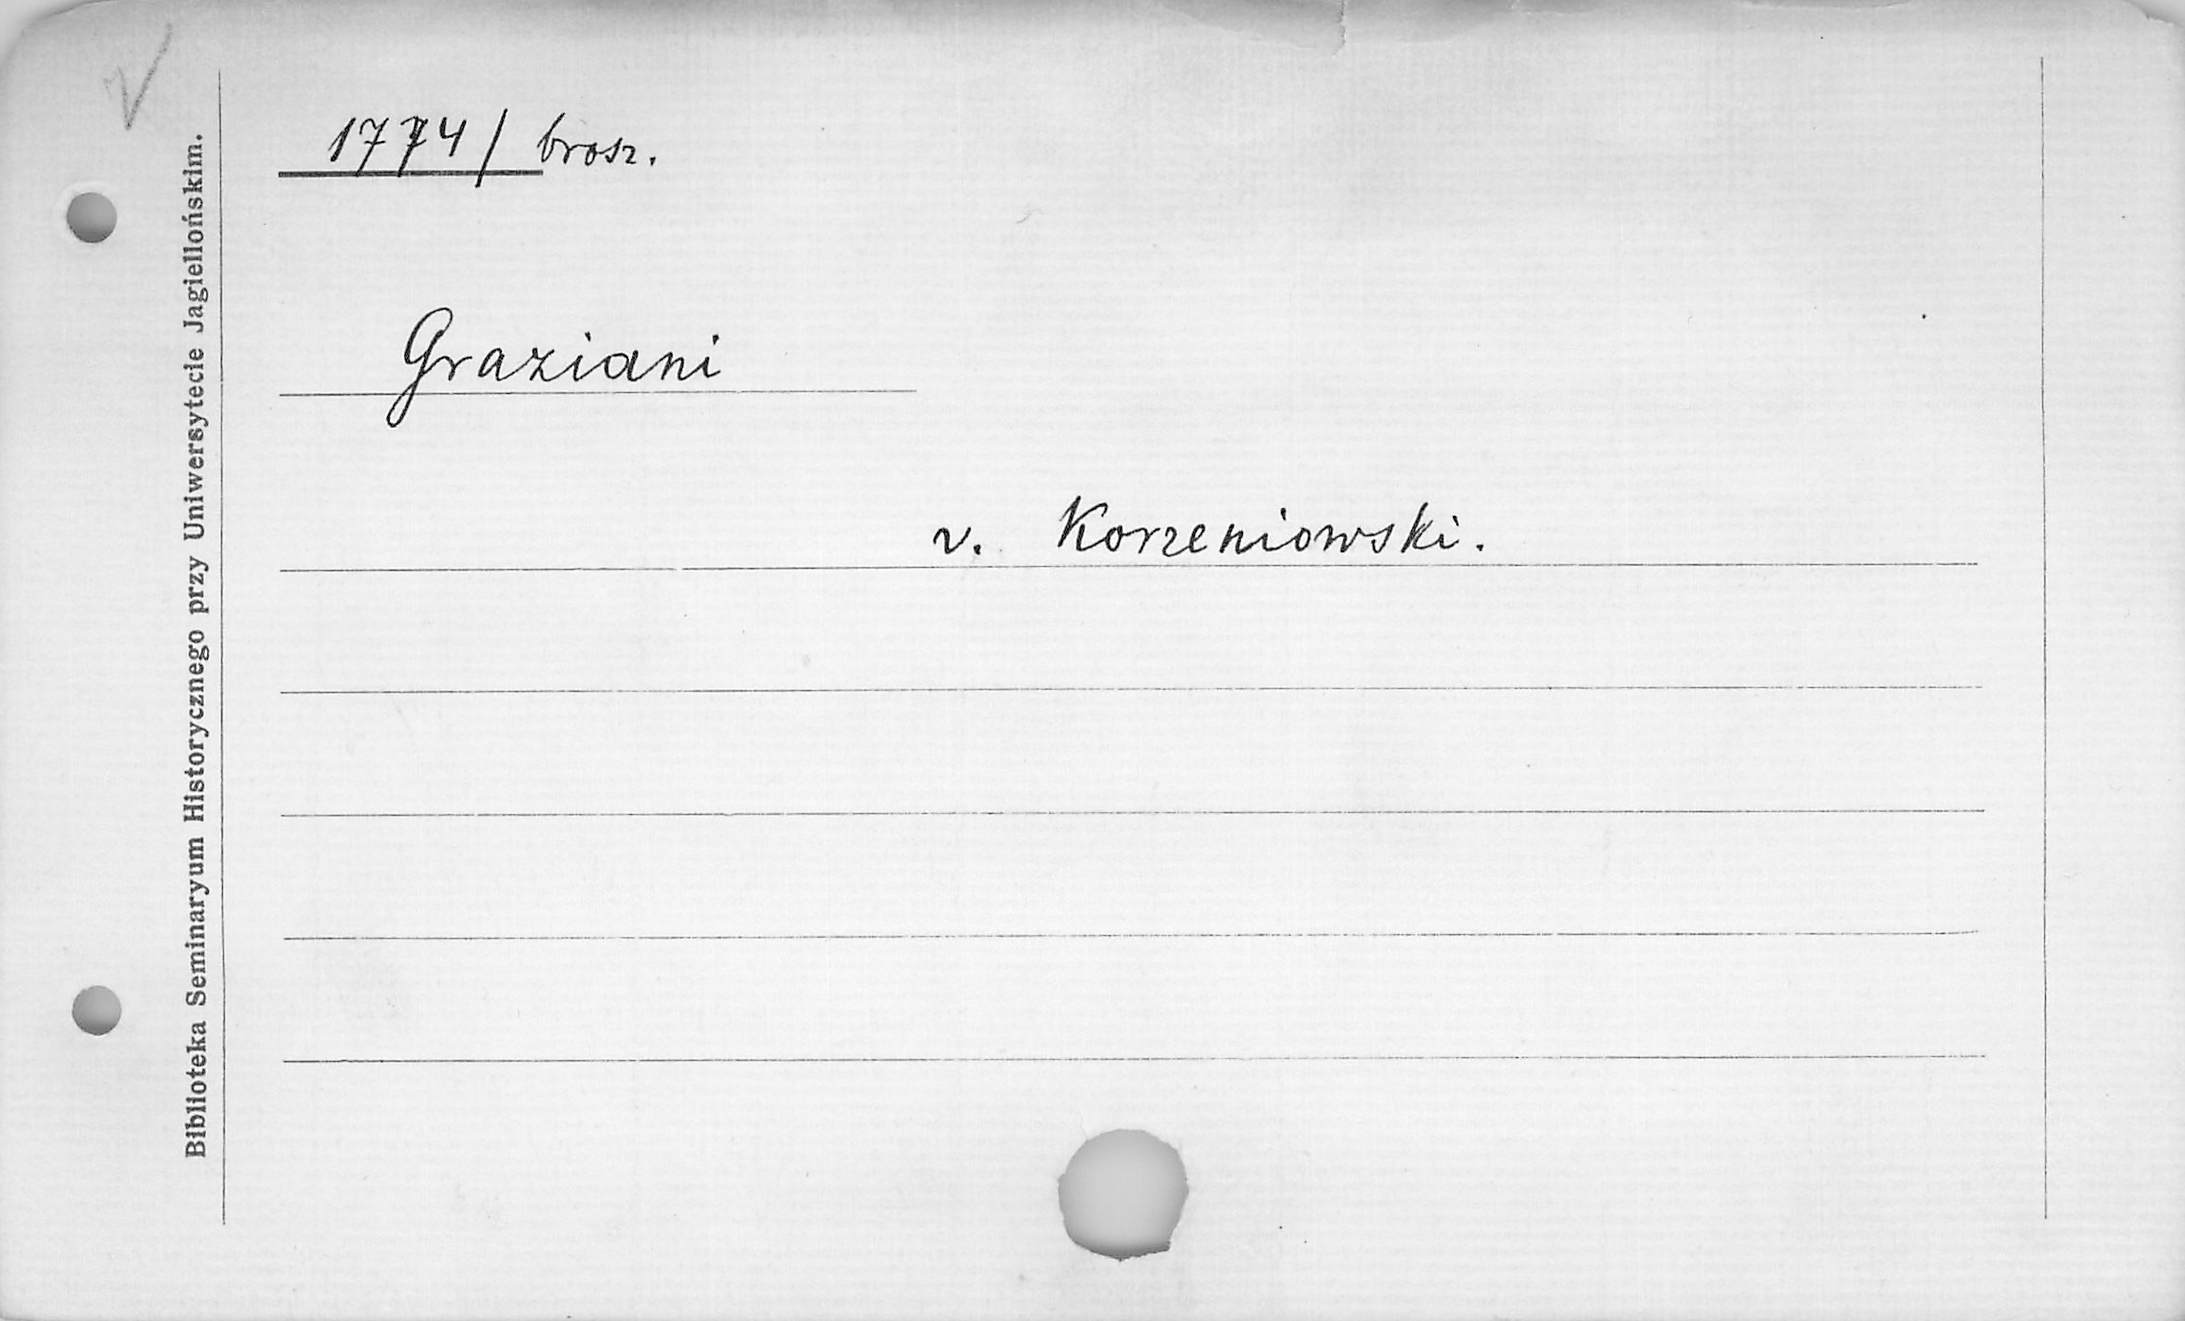 1774/ brosz.
Graziani
v. Korzeniowski.
Biblioteka Seminaryum Historycznego przy Uniwersytecie Jagiellońskim.